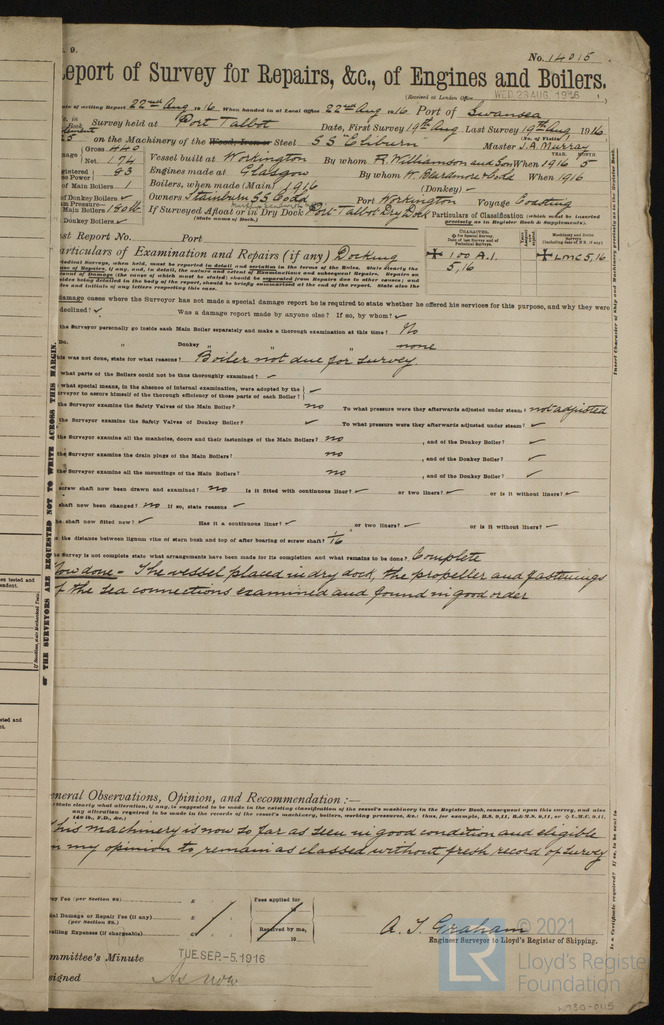 . 9.
No. 14015
Report of Survey for Repairs, &c., of Engines and Boilers.
(Received at London Office WED. 23 AUG. 1916 )
ate of writing Report 22nd Aug 1916 When handed in at Local Office 22nd Aug 1916 Port of Swansea
Survey held at Port Talbot Date, First Survey 19th Aug Last Survey 19th Aug 1916
(No. of Visits 1 )
on the Machinery of the Wood, Iron or Steel S S "Eliburn" Master J. A. Murray
Gross 440
Net. 174 Vessel built at Workington By whom R. Williamson and Son When 1916 5
YEAR. MONTH
gistered se Power 83 Engines made at Glasgow By whom W. Beardmore & Co Ld When 1916
of Main Boilers 1 Boilers, when made (Main) 1916 (Donkey) ✓
of Donkey Boilers ✓ Owners Stainburn SS Co Ld Port Workington Voyage Coasting
Pressure—
Main Boilers 180 lb If Surveyed Afloat or in Dry Dock Port Talbot Dry Dock
(State name of Dock.)
Donkey Boilers ✓
Particulars of Classification (which must be inserted precisely as in Register Book & Supplements).
st Report No. Port
articulars of Examination and Repairs (if any) Docking
CHARACTER.
✠ 100 A.1.
5,16
Machinery and Boiler Surveys
✠ LMC 5,16
damage cases where the Surveyor has not made a special damage report he is required to state whether he offered his services for this purpose, and why they were
declined? ✓ Was a damage report made by anyone else? If so, by whom? ✓
the Surveyor personally go inside each Main Boiler separately and make a thorough examination at this time? No
Do. " Donkey " " " none
his was not done, state for what reasons? Boiler not due for survey.
what parts of the Boilers could not be thus thoroughly examined? ✓
what special means, in the absence of internal examination, were adopted by the
urveyor to assure himself of the thorough efficiency of those parts of each Boiler? ✓
the Surveyor examine the Safety Valves of the Main Boiler? no To what pressure were they afterwards adjusted under steam? not adjusted
the Surveyor examine the Safety Valves of Donkey Boiler? ✓ To what pressure were they afterwards adjusted under steam? ✓
the Surveyor examine all the manholes, doors and their fastenings of the Main Boilers? no , and of the Donkey Boiler? ✓
the Surveyor examine the drain plugs of the Main Boilers? no , and of the Donkey Boiler? ✓
the Surveyor examine all the mountings of the Main Boilers? no , and of the Donkey Boiler? ✓
screw shaft now been drawn and examined? no Is it fitted with continuous liner? ✓ or two liners? ✓ or is it without liners? ✓
shaft now been changed? no If so, state reasons ✓
he shaft now fitted new? ✓ Has it a continuous liner? ✓ or two liners? ✓ or is it without liners? ✓
the distance between lignum vitæ of stern bush and top of after bearing of screw shaft? 1/16
he Survey is not complete state what arrangements have been made for its completion and what remains to be done? Complete
Now done - The vessel placed in dry dock, the propeller and fastenings
of the sea connections examined and found in good order
OF THE SURVEYORS ARE REQUESTED NOT TO WRITE ACROSS THIS MARGIN.
eneral Observations, Opinion, and Recommendation:—
This machinery is now so far as seen in good condition and eligible
in my opinion to remain as classed without fresh record of survey
Fee (per Section 28) £
Fees applied for
19
al Damage or Repair Fee (if any) £
(per Section 28.)
elling Expenses (if chargeable) £
Received by me,
19
A. T. Graham
Engineer Surveyor to Lloyd's Register of Shipping.
ommittee's Minute TUE. SEP. -5. 1916
signed As now
© 2021
LR
Lloyd's Register
Foundation
W730-0115